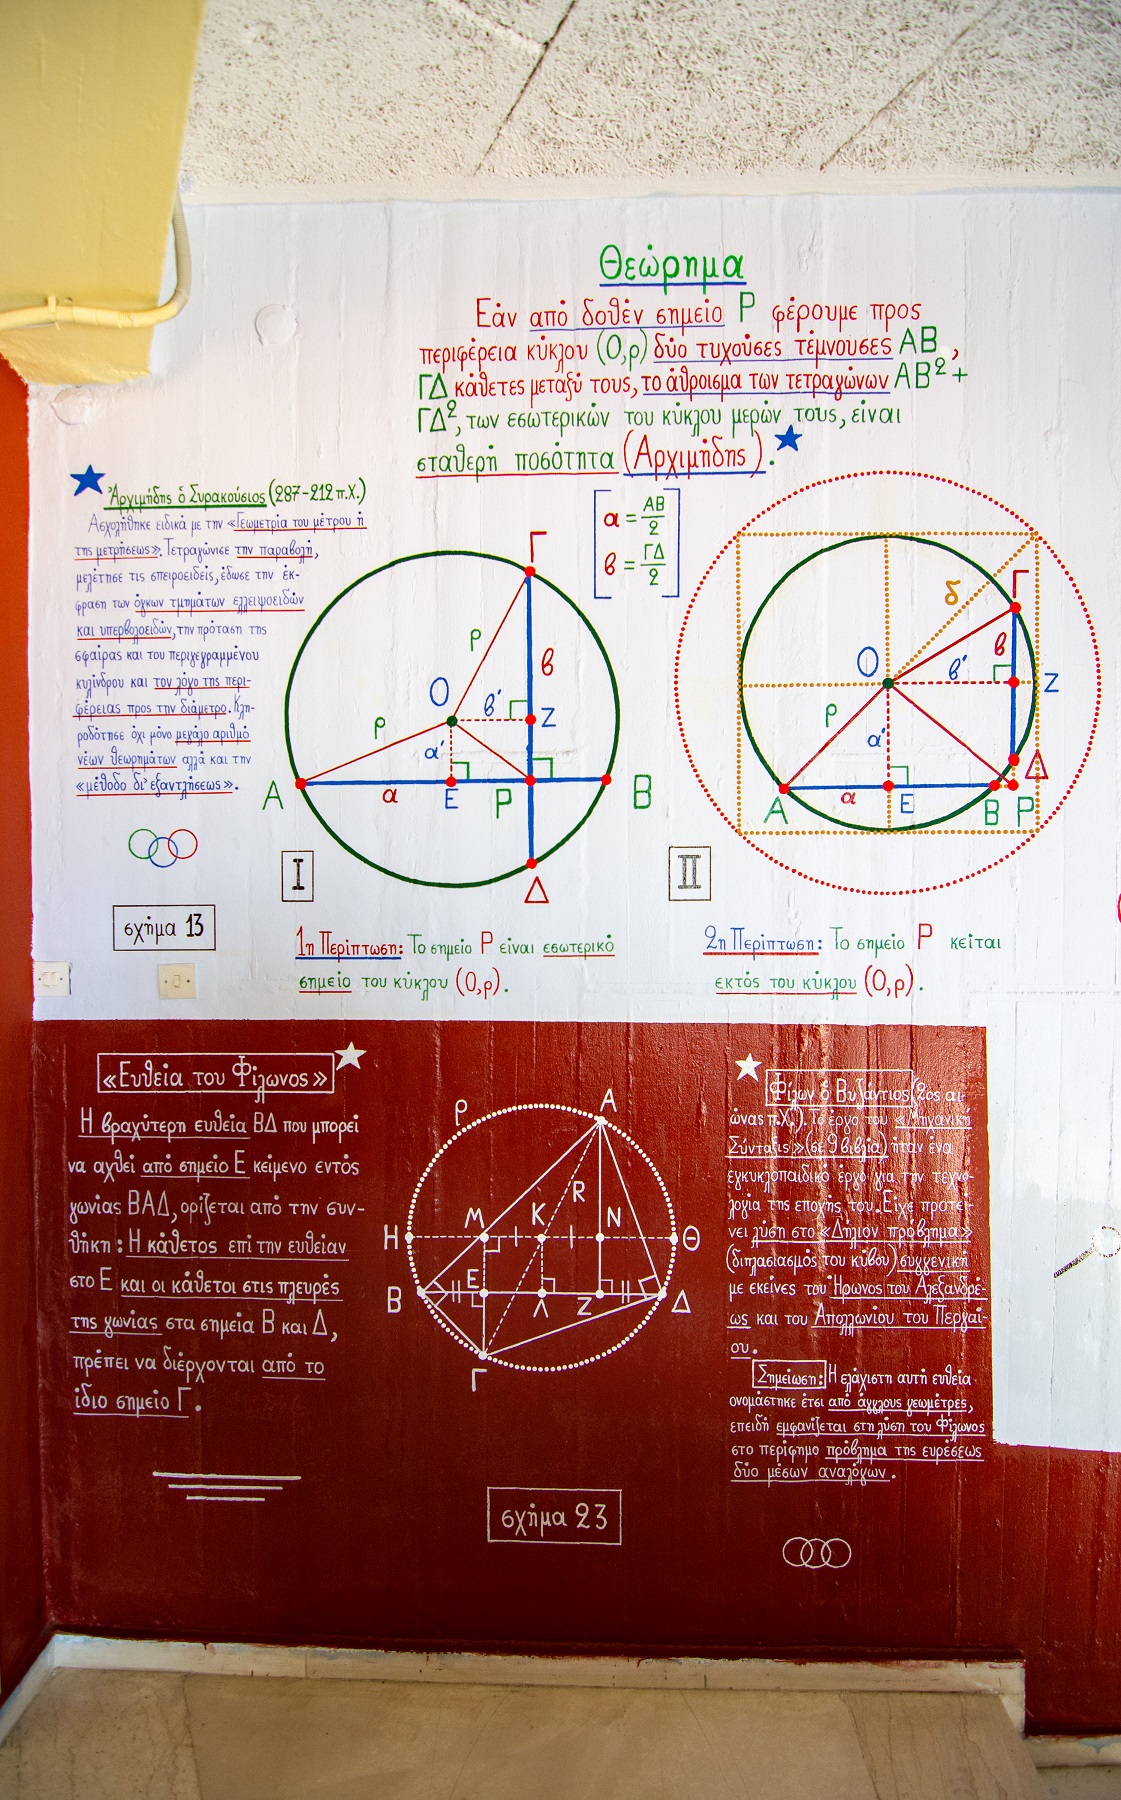 Θεώρημα
Εάν από δοθέν σημείο Ρ φέρουμε προς
περιφέρεια κύκλου (Ο,ρ) δύο τυχούσες τέμνουσες ΑΒ,
ΓΔ κάθετες μεταξύ τους, το άθροισμα των τετραγώνων ΑΒ² +
ΓΔ², των εσωτερικών του κύκλου μερών τους, είναι
σταθερή ποσότητα (Αρχιμήδης).
Ἀρχιμήδης ὁ Συρακούσιος (287-212 π.Χ.)
Ασχολήθηκε ειδικά με την «Γεωμετρία του μέτρου ή
της μετρήσεως». Τετραγώνισε την παραβολή,
μελέτησε τις σπειροειδείς, έδωσε την έκ-
φραση των όγκων τμημάτων ελλειψοειδών
και υπερβολοειδών, την πρόταση της
σφαίρας και του περιγεγραμμένου
κυλίνδρου και τον λόγο της περι-
φέρειας προς την διάμετρο. Κλη-
ροδότησε όχι μόνο μεγάλο αριθμό
νέων θεωρημάτων αλλά και την
«μέθοδο δι' εξαντλήσεως».
σχήμα 13
α = ΑΒ/2
β = ΓΔ/2
Γ
ρ
β
Ο
β'
Ζ
ρ
α'
Α
α
Ε
Ρ
Β
Δ
I
δ
Γ
Ο
β
β'
Ζ
ρ
α'
Δ
Α
α
Ε
Β
Ρ
II
1η Περίπτωση: Το σημείο Ρ είναι εσωτερικό
σημείο του κύκλου (Ο,ρ).
2η Περίπτωση: Το σημείο Ρ κείται
εκτός του κύκλου (Ο,ρ).
«Ευθεία του Φίλωνος»
Η βραχύτερη ευθεία ΒΔ που μπορεί
να αχθεί από σημείο Ε κείμενο εντός
γωνίας ΒΑΔ, ορίζεται από την συν-
θήκη: Η κάθετος επί την ευθείαν
στο Ε και οι κάθετοι στις πλευρές
της γωνίας στα σημεία Β και Δ,
πρέπει να διέρχονται από το
ίδιο σημείο Γ.
ρ
Α
R
Μ
Κ
Ν
Η
Θ
Ε
Β
Λ
Ζ
Δ
Γ
σχήμα 23
Φίλων ὁ Βυζάντιος (2ος αι-
ώνας π.Χ.). Το έργο του «Μηχανική
Σύνταξις» (σε 9 βιβλία) ήταν ένα
εγκυκλοπαιδικό έργο για την τεχνο-
λογία της εποχής του. Είχε προτεί-
νει λύση στο «Δήλιον πρόβλημα»
(διπλασιασμός του κύβου) συγγενική
με εκείνες του Ήρωνος του Αλεξανδρέ-
ως και του Απολλωνίου του Περγαί-
ου.
Σημείωση: Η ελάχιστη αυτή ευθεία
ονομάστηκε έτσι από άγγλους γεωμέτρες,
επειδή εμφανίζεται στη λύση του Φίλωνος
στο περίφημο πρόβλημα της ευρέσεως
δύο μέσων αναλόγων.